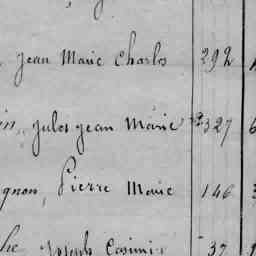 , Jean Marie Charles 292
in, Jules Jean Marie 327 6
gnon, Pierre Marie 146 3
he Joseph Casimir 37